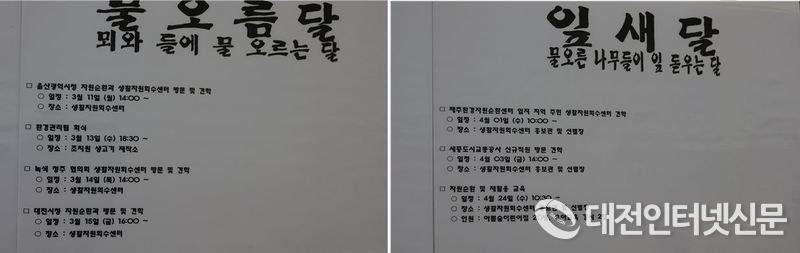 물오름달
뫼와 들에 물 오르는 달
□ 울산광역시청 자원순환과 생활자원회수센터 방문 및 견학
○ 일정 : 3월 11일 (월) 14:00 ~
○ 장소 : 생활자원회수센터
□ 환경관리팀 회식
○ 일정 : 3월 13일 (수) 18:30 ~
○ 장소 : 조치원 생고기 제작소
□ 녹색 청주 협의회 생활자원회수센터 방문 및 견학
○ 일정 : 3월 14일 (목) 14:00 ~
○ 장소 : 생활자원회수센터
□ 대전시청 자원순환과 방문 및 견학
○ 일정 : 3월 15일 (금) 16:00 ~
○ 장소 : 생활자원회수센터
잎새달
물오른 나무들이 잎 돋우는 달
□ 제주환경자원순환센터 입지 지역 주민 생활자원회수센터 견학
○ 일정 : 4월 01일 (수) 10:00 ~
○ 장소 : 생활자원회수센터 홍보관 및 선별장
□ 세종도시교통공사 신규직원 방문 견학
○ 일정 : 4월 03일 (금) 14:00 ~
○ 장소 : 생활자원회수센터 홍보관 및 선별장
□ 자원순환 및 재활용 교육
○ 일정 : 4월 24일 (수) 10:30 ~
○ 장소 : 생활자원회수센터 및 선별장
○ 인원 : 아름숲어린이집
대전인터넷신문